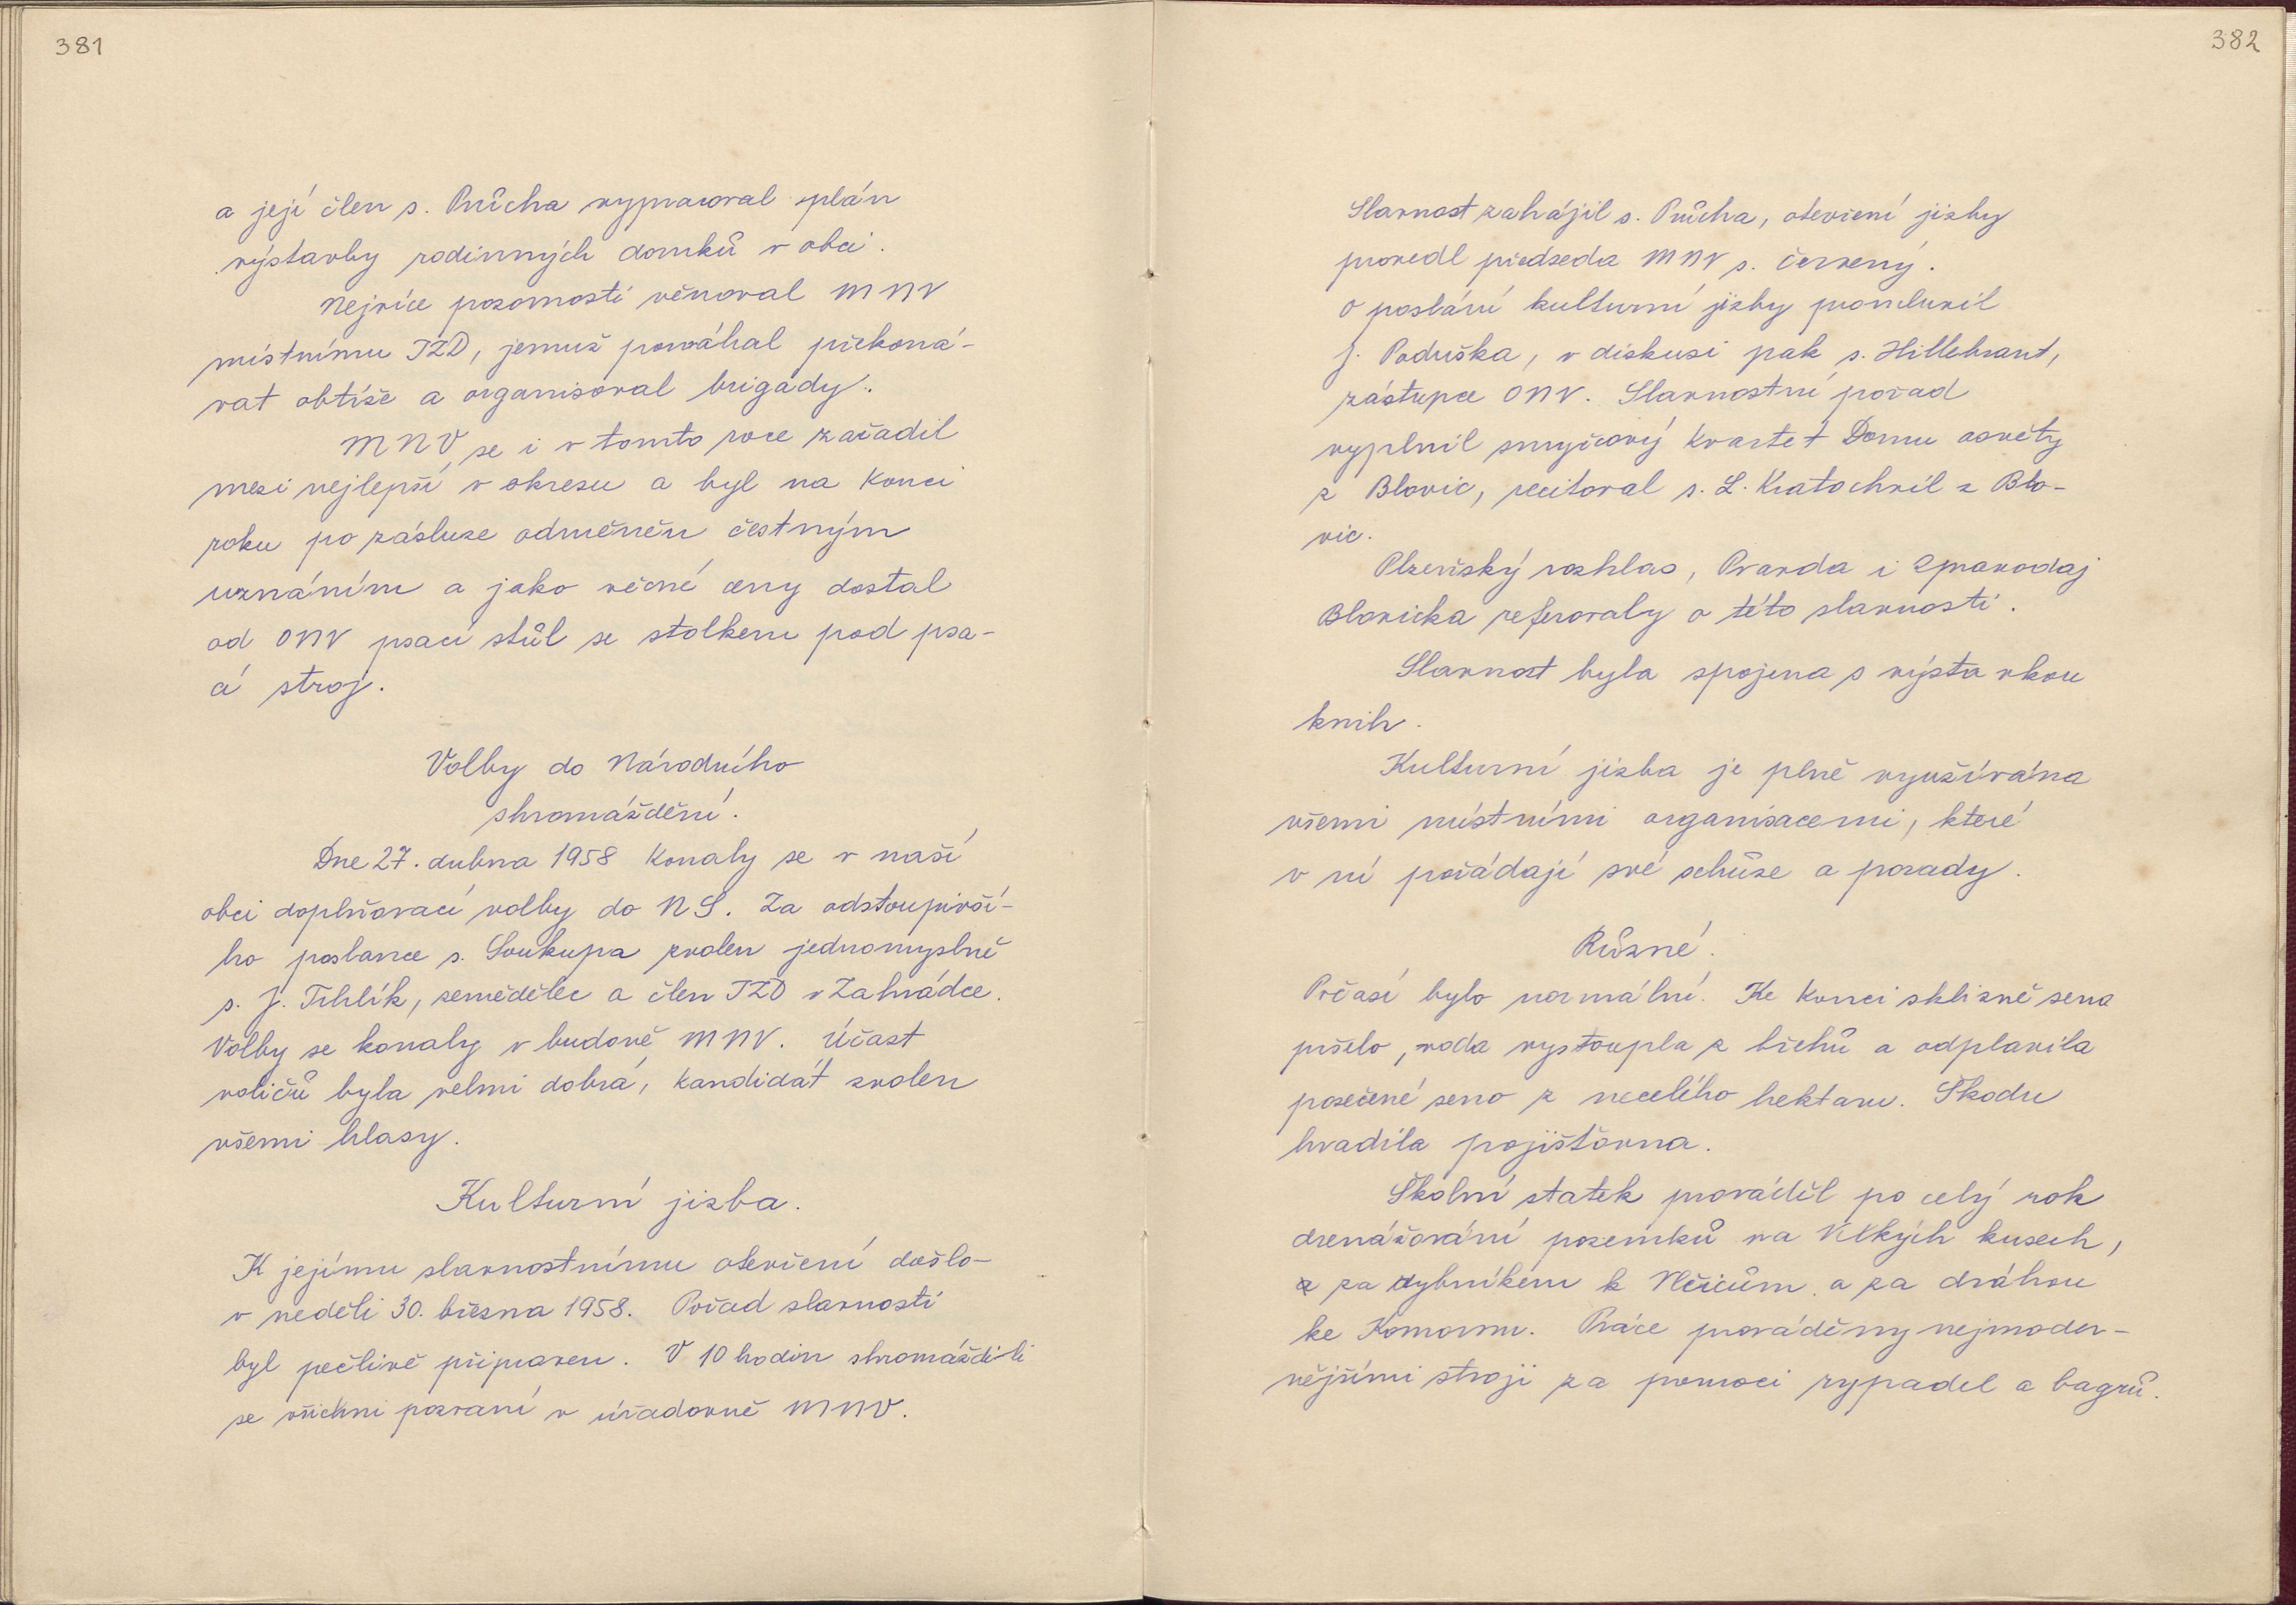 381
a její člen s. Průcha vypracoval plán
výstavby rodinných domků v obci.
Nejvíce pozornosti věnoval MNV
místnímu JZD, jemuž pomáhal překoná-
vat obtíže a organisoval brigády.
MNV se i v tomto roce zařadil
mezi nejlepší v okresu a byl na konci
roku po zásluze odměněn čestným
uznáním a jako věcné ceny dostal
od ONV psací stůl se stolkem pod psa-
cí stroj.
Volby do Národního
shromáždění.
Dne 27. dubna 1958 konaly se v naší
obci doplňovací volby do NS. Za odstoupivší-
ho poslance s. Soukupa zvolen jednomyslně
s. J. Trhlík, zemědělec a člen JZD v Zahrádce.
Volby se konaly v budově MNV. Účast
voličů byla velmi dobrá, kandidát zvolen
všemi hlasy.
Kulturní jizba.
K jejímu slavnostnímu otevření došlo
v neděli 30. března 1958. Pořad slavnosti
byl pečlivě připraven. V 10 hodin shromáždili
se všichni pozvaní v úřadovně MNV.
382
Slavnost zahájil s. Průcha, otevření jizby
provedl předseda MNV s. Červený.
O poslání kulturní jizby promluvil
J. Poduška, v diskusi pak s. Hillebrant,
zástupce ONV. Slavnostní pořad
vyplnil smyčcový kvartet Domu osvěty
z Blovic, recitoval s. L. Kratochvíl z Blo-
vic.
Plzeňský rozhlas, Pravda i Zpravodaj
Blovicka referovaly o této slavnosti.
Slavnost byla spojena s výstavkou
knih.
Kulturní jizba je plně využívána
všemi místními organisacemi, které
v ní pořádají své schůze a porady.
Různé.
Počasí bylo normální. Ke konci sklizně sena
pršelo, voda vystoupla z břehů a odplavila
posečené seno z necelého hektaru. Škodu
hradila pojišťovna.
Školní statek prováděl po celý rok
drenážování pozemků na Velkých kusech,
za rybníkem k Vlčicům a za dráhou
ke Komornu. Práce prováděny nejmoder-
nějšími stroji za pomoci rypadel a bagrů.